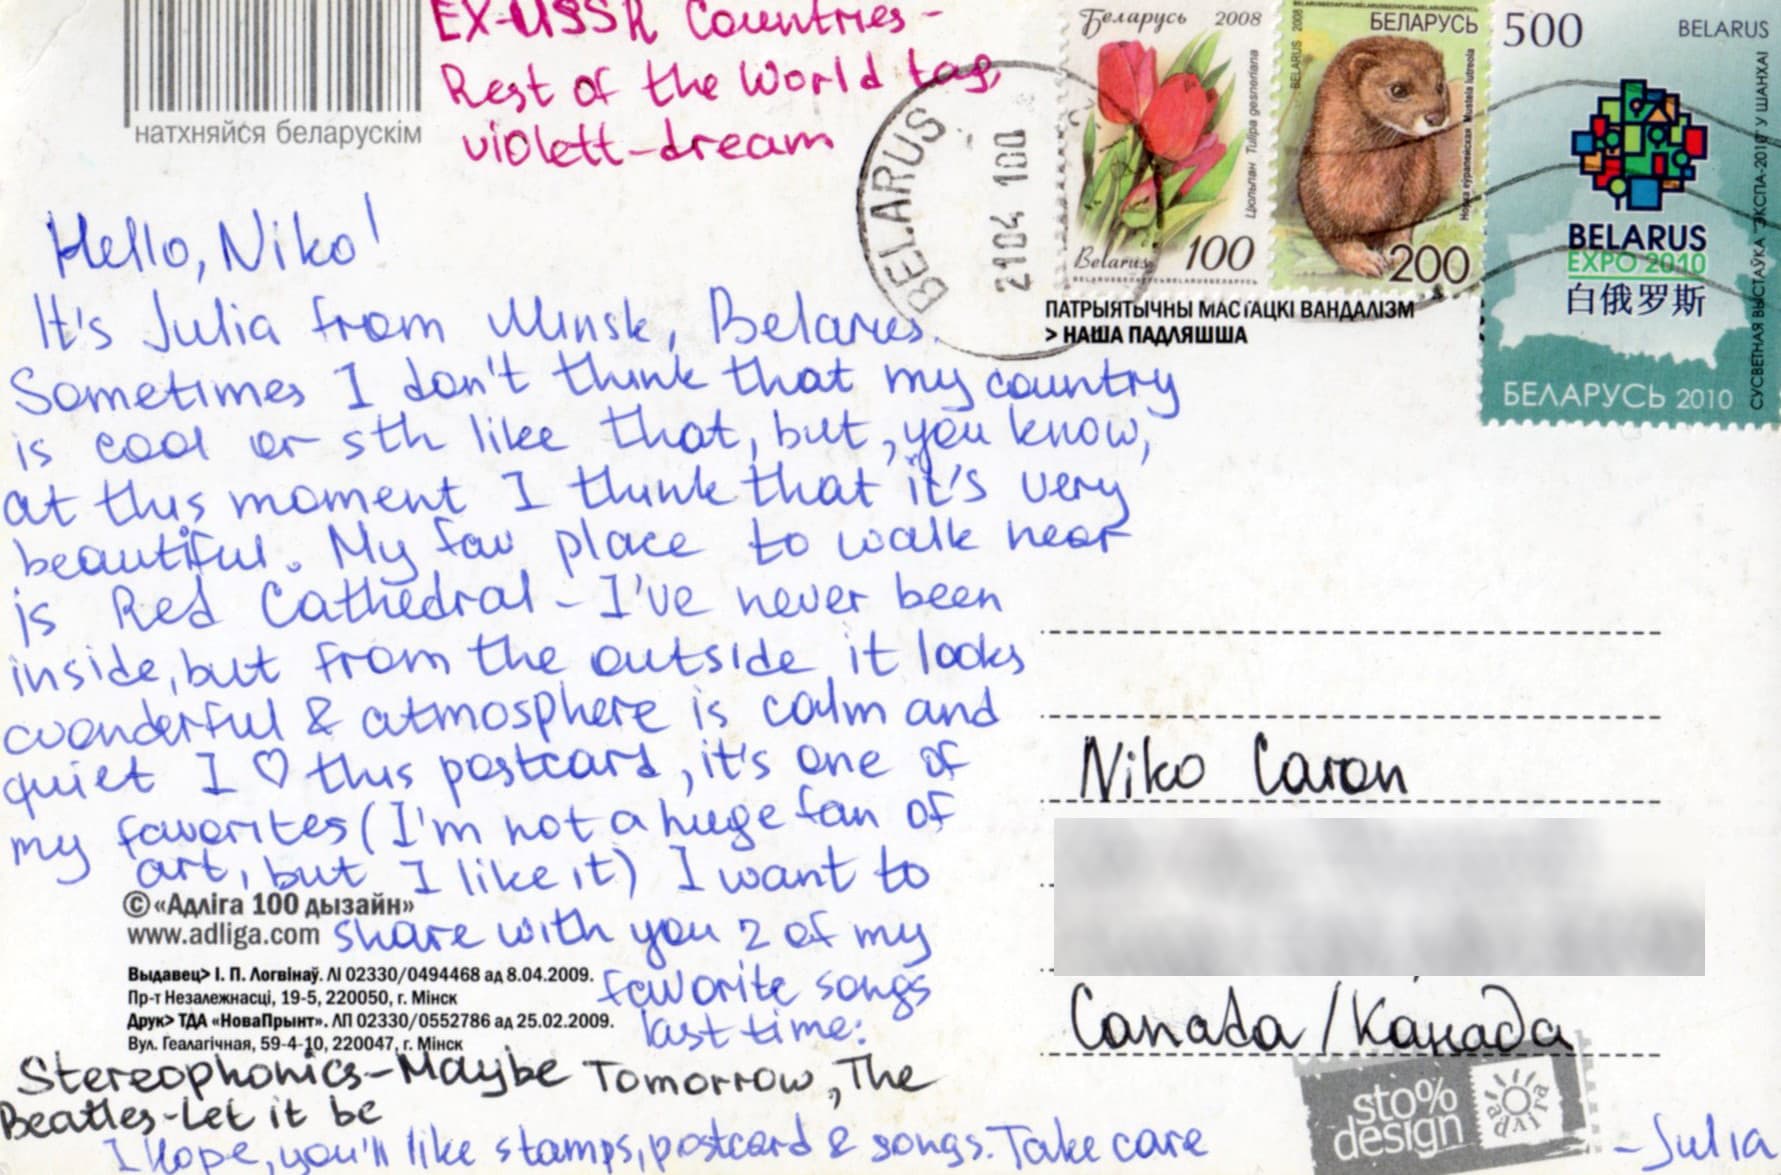 EX-USSR Countries-
Rest of the World tag
violett-dream
натхняйся беларускім
Hello, Niko!
It's Julia from Minsk, Belarus.
Sometimes I don't think that my country
is cool or sth like that, but, you know,
at this moment I think that it's very
beautiful. My fav place to walk near
is Red Cathedral - I've never been
inside, but from the outside it looks
wonderful & atmosphere is calm and
quiet I ♡ this postcard, it's one of
my favorites (I'm not a huge fan of
art, but I like it) I want to
share with you 2 of my
favorite songs
last time:
Stereophonics-Maybe Tomorrow, The
Beatles-Let it be
I hope, you'll like stamps, postcard & songs. Take care
-Julia
©«Адліга 100 дызайн»
www.adliga.com
Выдавец> І. П. Логвінаў. ЛІ 02330/0494468 ад 8.04.2009.
Пр-т Незалежнасці, 19-5, 220050, г. Мінск
Друк> ТДА «НоваПрынт». ЛП 02330/0552786 ад 25.02.2009.
Вул. Геалагічная, 59-4-10, 220047, г. Мінск
BELARUS
2104 100
Беларусь 2008
Цюльпан Tulipa gesneriana
Belarus 100
БЕЛАРУСЬ
BELARUS 2008
Норка еўрапейская Mustela lutreola
200
500 BELARUS
BELARUS
EXPO 2010
白俄罗斯
СУСВЕТНАЯ ВЫСТАЎКА "ЭКСПА-2010" У ШАНХАІ
БЕЛАРУСЬ 2010
ПАТРЫЯТЫЧНЫ МАСТАЦКІ ВАНДАЛІЗМ
> НАША ПАДЛЯШША
Niko Caron
Canada/Канада
sto%
design